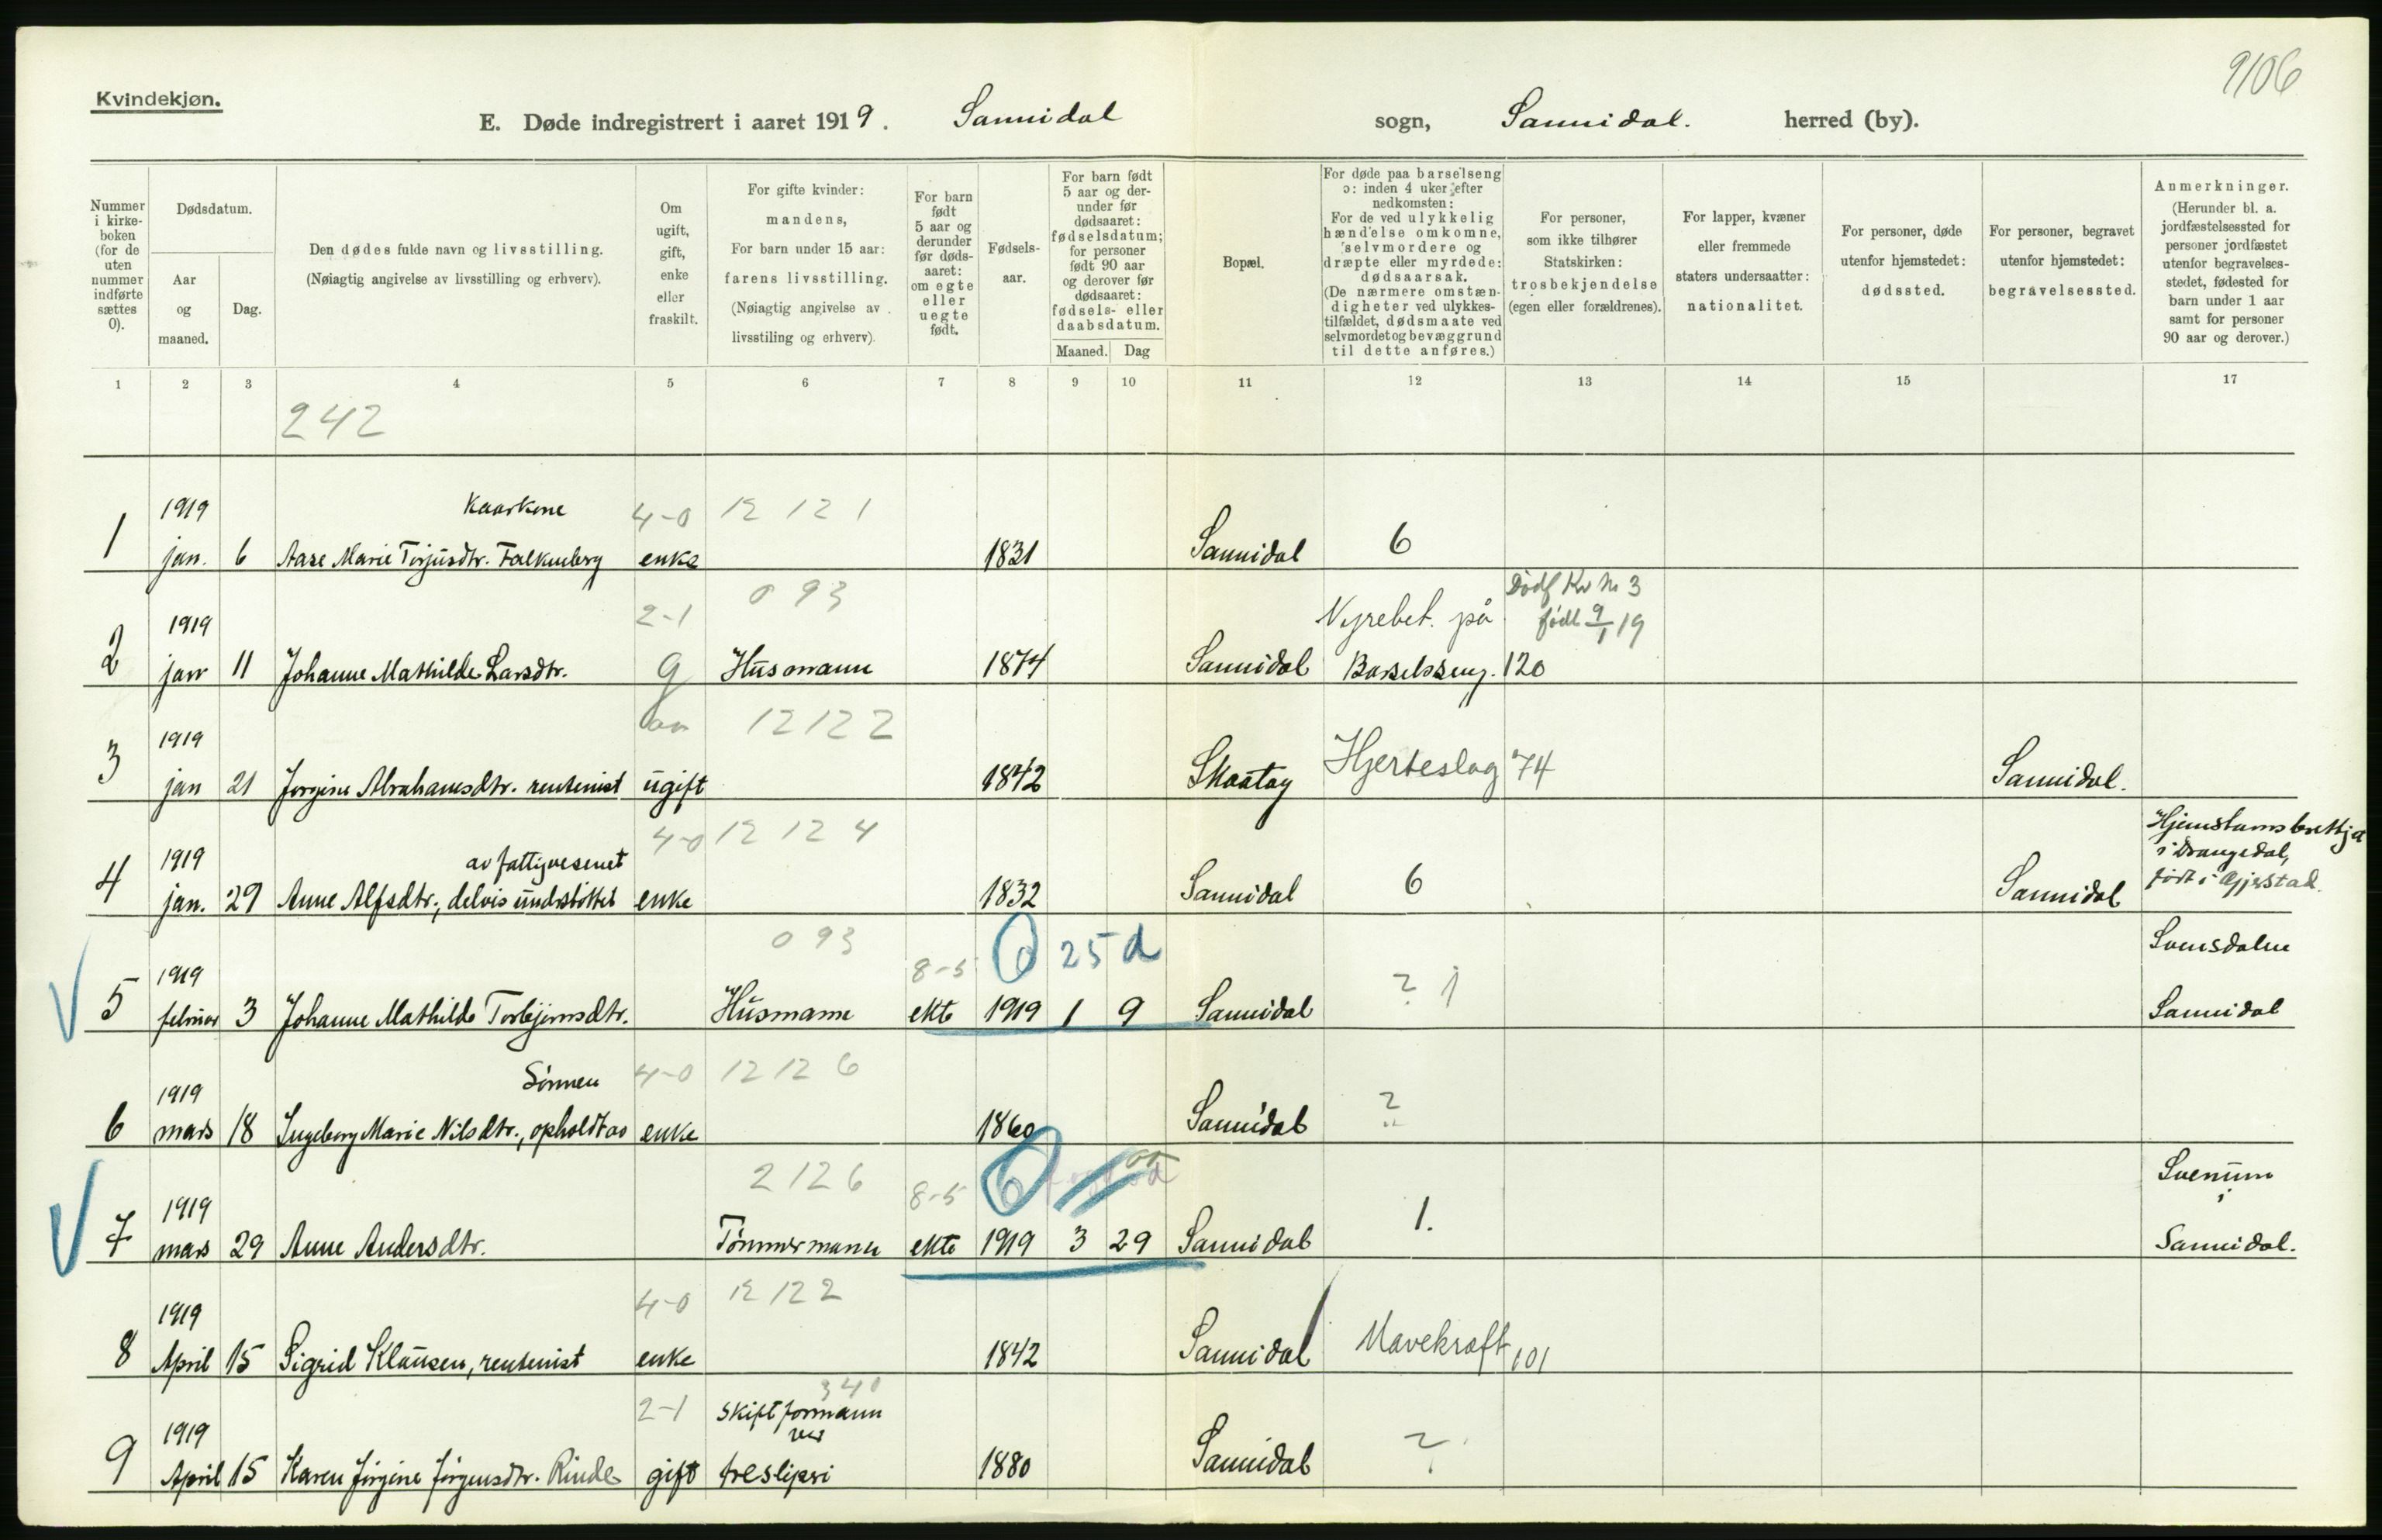 9106
Kvindekjøn.
E. Døde indregistrert i aaret 1919. Sannidal sogn, Sannidal. herred (by).
Nummer i kirke- boken (for de uten nummer indførte sættes 0).
Dødsdatum.
Aar og maaned.
Dag.
Den dødes fulde navn og livsstilling.
(Nøiagtig angivelse av livsstilling og erhverv).
Om ugift, gift, enke eller fraskilt.
For gifte kvinder: mandens,
For barn under 15 aar: farens livsstilling.
(Nøiagtig angivelse av livsstiling og erhverv).
For barn født 5 aar og derunder før døds- aaret: om egte eller uegte født.
Fødsels- aar.
For barn født 5 aar og der- under før dødsaaret: fødselsdatum; for personer født 90 aar og derover før dødsaaret: fødsels- eller daabsdatum.
Maaned. Dag
Bopæl.
For døde paa barselseng ɔ: inden 4 uker efter nedkomsten:
For de ved ulykkelig hændelse omkomne, selvmordere og dræpte eller myrdede: dødsaarsak.
(De nærmere omstæn- digheter ved ulykkes- tilfældet, dødsmaate ved selvmordet og bevæggrund til dette anføres.)
For personer, som ikke tilhører Statskirken: trosbekjendelse (egen eller forældrenes).
For lapper, kvæner eller fremmede staters undersaatter: nationalitet.
For personer, døde utenfor hjemstedet: dødssted.
For personer, begravet utenfor hjemstedet: begravelsessted.
Anmerkninger.
(Herunder bl. a. jordfæstelsessted for personer jordfæstet utenfor begravelses- stedet, fødested for barn under 1 aar samt for personer 90 aar og derover.)
1 2 3 4 5 6 7 8 9 10 11 12 13 14 15 17
242
1919 Kaarkone 4-0 12 12 1
1 jan. 6 Aase Marie Torjusdtr. Falkenberg enke 1831 Sannidal 6
1919 2-1 0 93 Nyrebet. på Dødf Kv Nr 3 født 9/1 19
2 jan 11 Johanne Mathilde Larsdtr. g Husmann 1874 Sannidal Barselsseng. 120
1919 12 12 2
3 jan 21 Jorgine Abrahamsdtr. rentenist ugift 1842 Skaatøy Hjerteslag 74 Sannidal.
1919 av fattigvesenet 4-0 12 12 4 Hjemstamsberettja i Drangedal,
4 jan. 29 Anne Alfsdtr., delvis understøttet enke 1832 Sannidal 6 Sannidal født i Gjerstad.
1919 0 93 8-5 0 25 d Svensdalen
5 februar 3 Johanne Mathilde Torbjørnsdtr. Husmann ekte 1919 1 9 Sannidal ? 1 Sannidal
1919 Sønnen 4-0 12 12 6
6 mars 18 Ingeborg Marie Nilsdtr., opholdt av enke 1860 Sannidal ?
1919 2 12 6 8-5 0 Svenum i
7 mars 29 Anne Andersdtr. Tømmermann ekte 1919 3 29 Sannidal 1. Sannidal.
1919 4-0 12 12 2
8 April 15 Sigrid Klausen, rentenist enke 1842 Sannidal Mavekræft 101
1919 2-1 340 skiftformann ved
9 April 15 Karen Jørgine Jørgensdtr. Rinde gift tresliperi 1880 Sannidal ?